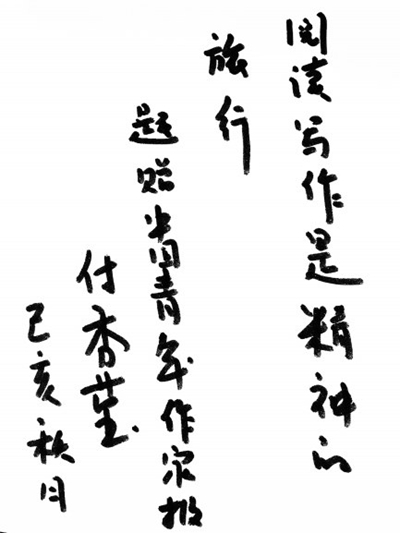 阅读写作是精神的
旅行
题赠中国青年作家报
付秀莹
己亥秋月